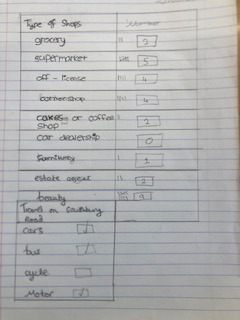 Type of Shops Number
grocery II 2
supermarket 5
off - licence IIII 4
cornershop IIII 4
cakes or coffee II 2
shop
car dealership 0
furnitery I 1
estate agent II 2
beauty 9
Travel on
Road
cars ✓
bus ✓
cycle
Motor ✓